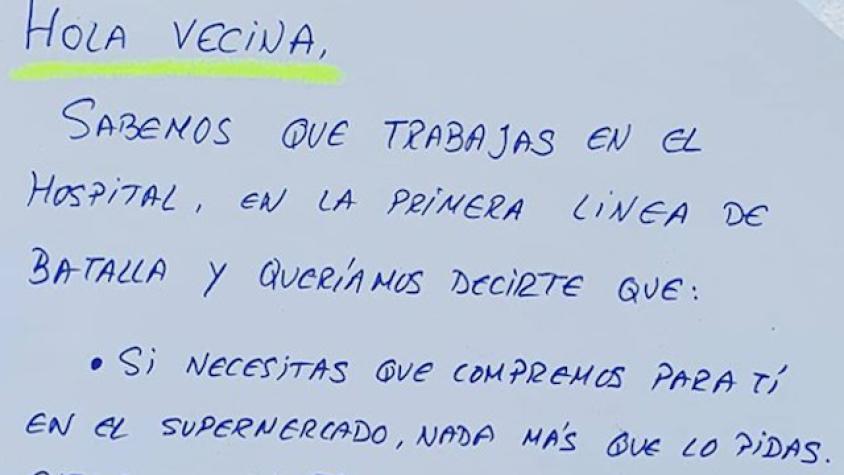 HOLA VECINA,
SABEMOS QUE TRABAJAS EN EL
HOSPITAL, EN LA PRIMERA LINEA DE
BATALLA Y QUERÍAMOS DECIRTE QUE:
• SI NECESITAS QUE COMPREMOS PARA TÍ
EN EL SUPERMERCADO, NADA MÁS QUE LO PIDAS.